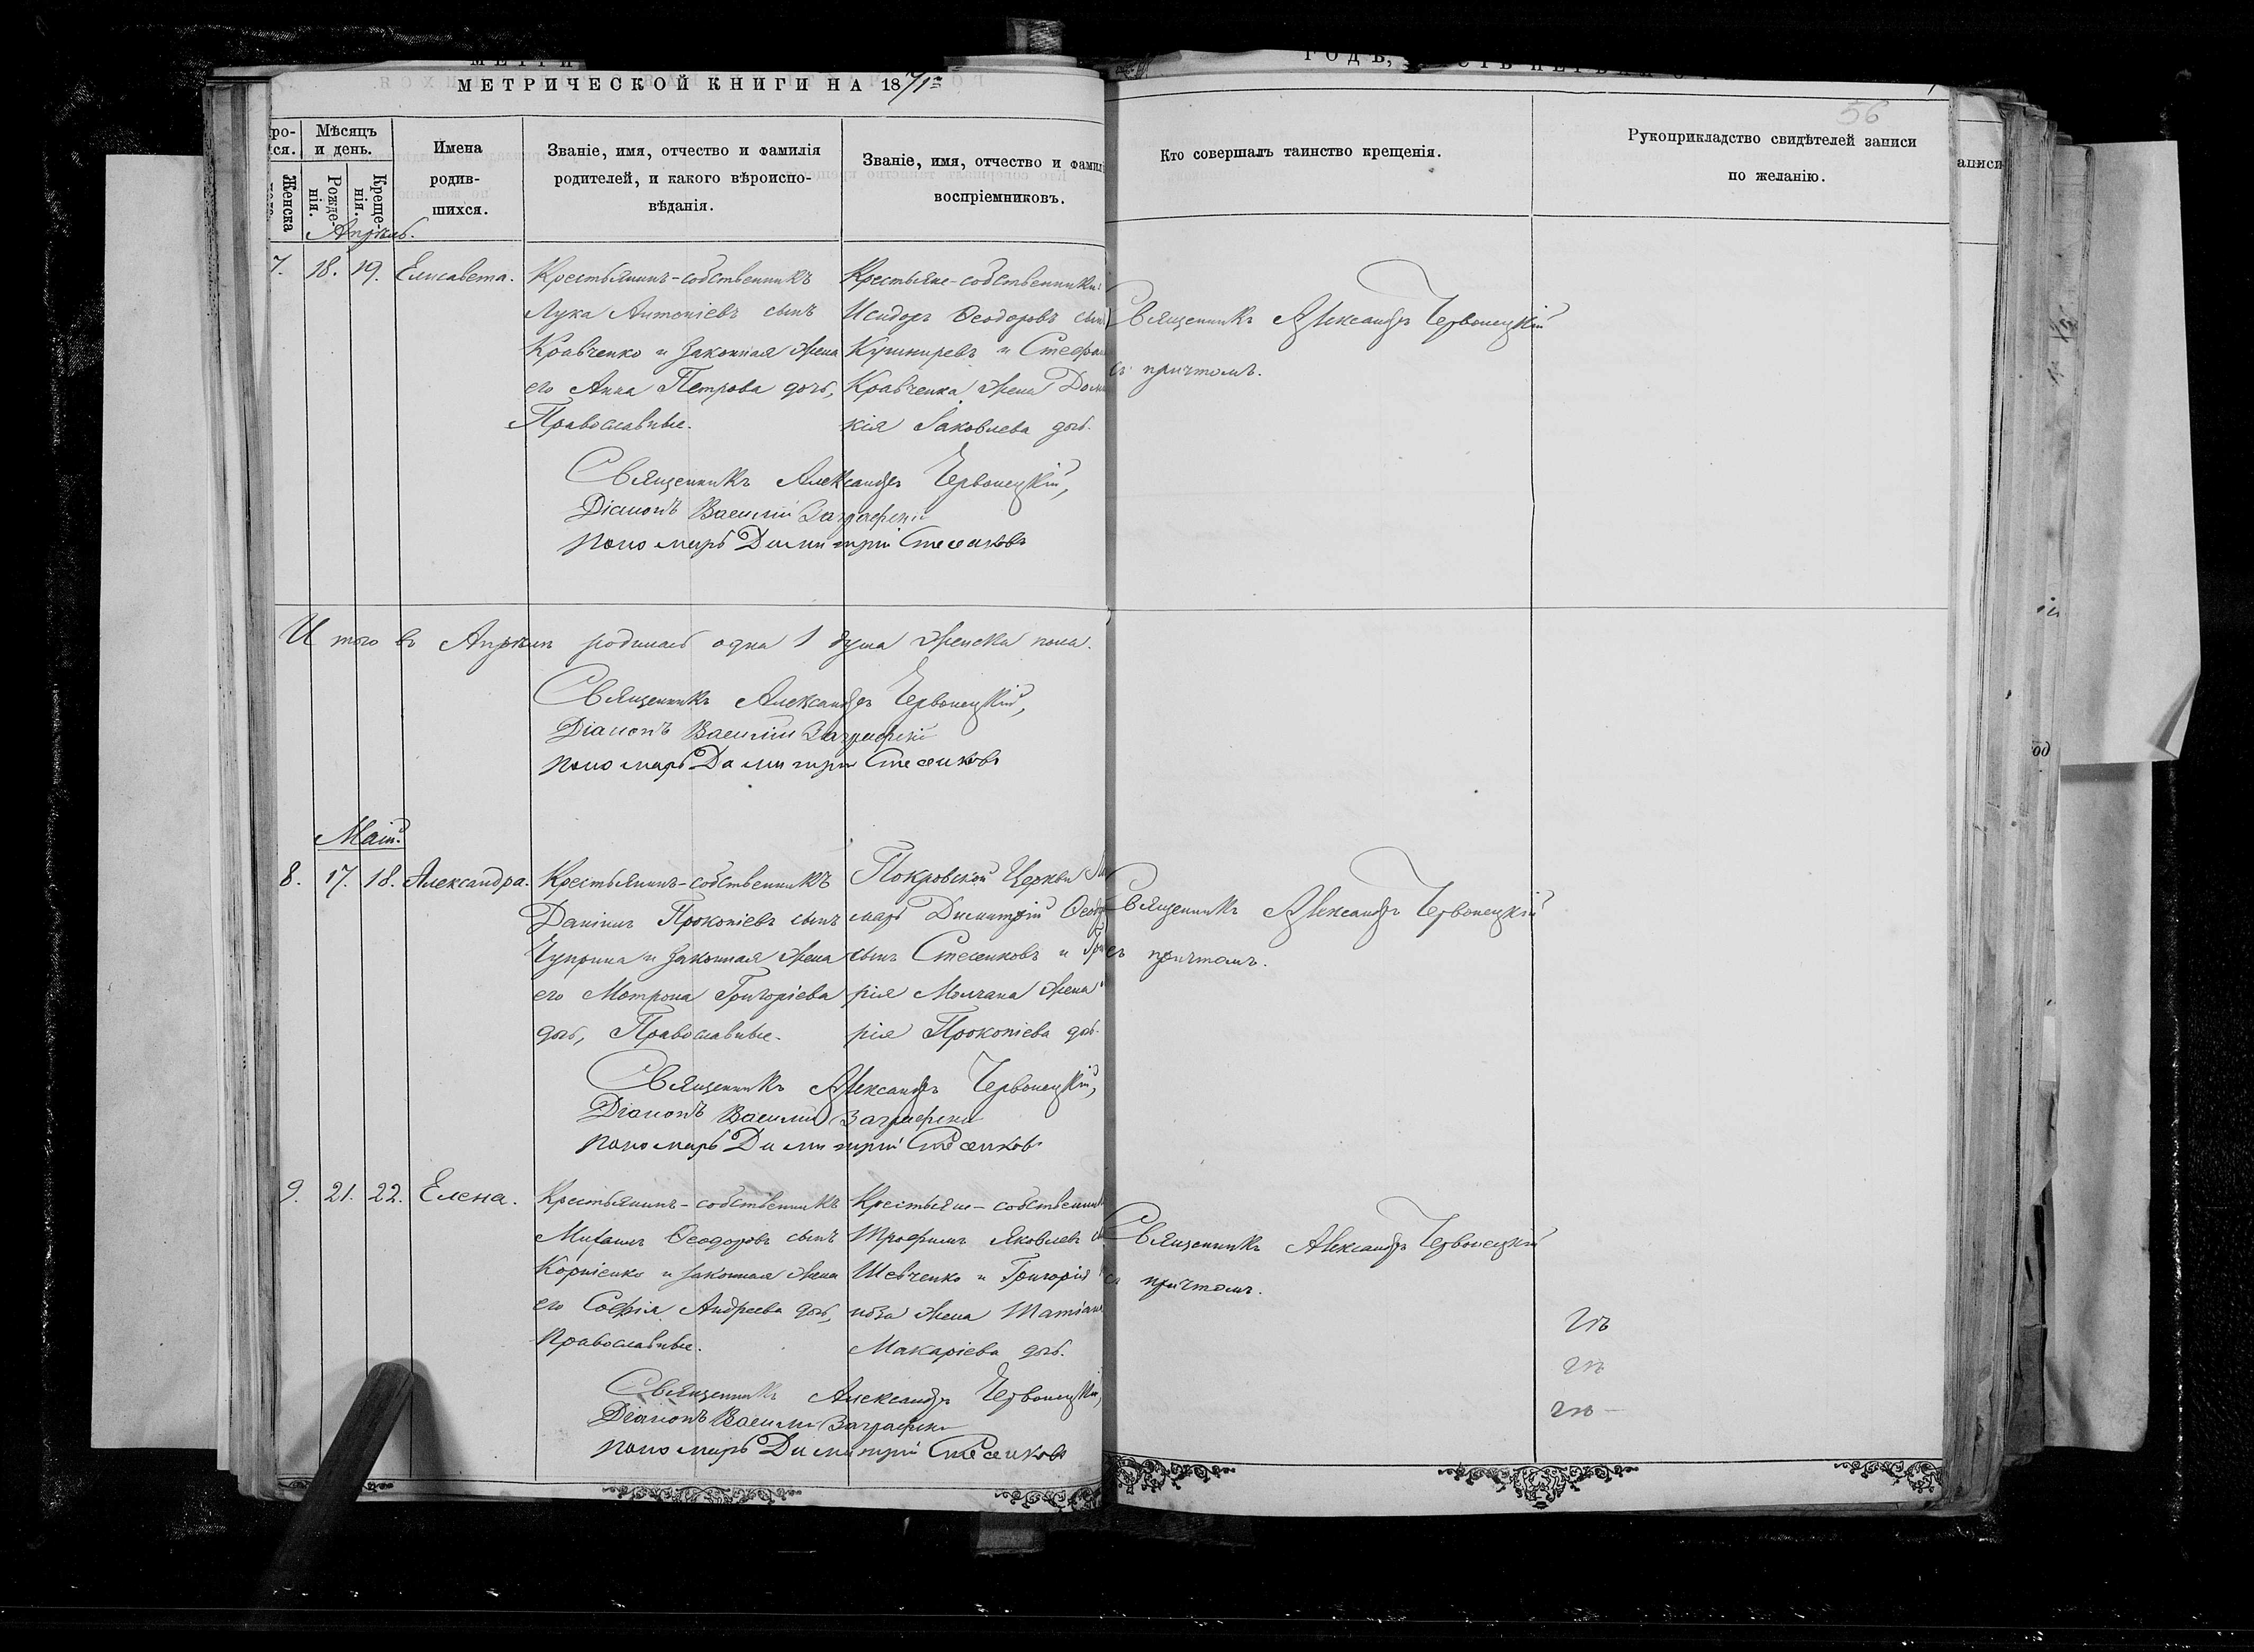 МЕТРИЧЕСКОЙ КНИГИ НА 1871
56
ро-
ся.
Мѣсяцъ
и день.
Женска
Рожде-
нія.
Креще-
нія.
Имена
родив-
шихся.
Званіе, имя, отчество и фамилія
родителей, и какого вѣроиспо-
вѣданія.
Званіе, имя, отчество и фамилі
воспріемниковъ.
Кто совершалъ таинство крещенія.
Рукоприкладство свидѣтелей записи
по желанію.
аписи
Апрѣль.
7. 18. 19. Елисавета.
Крестьянинъ-собственникъ
Лука Антоніевъ сынъ
Кравченко и законная жена
его Анна Петрова дочь,
Православные.
Крестьяне-собственники:
Исидоръ Ѳеодоровъ сынъ
Кушниревъ и Стефан
Кравченка жена Дом
кія Іаковлева дочь.
Священникъ Александръ Червонецкій
съ причтомъ.
Священникъ Александръ Червонецкій,
Діаконъ Василій
пономарь Димитрій Стесенковъ
Итого въ Апрѣлѣ родилась одна 1 душа женска пола.
Священникъ Александръ Червонецкій,
Діаконъ Василій
пономарь Димитрій Стесенковъ
Маій.
8. 17. 18. Александра.
Крестьянинъ-собственникъ
Даніилъ Прокопіевъ сынъ
Чуприна и законная жена
его Мотрона Григоріева
дочь, Православные.
Покровской Церкви
марь Димитрій Ѳеод
сынъ Стесенковъ и Гри
рія Молчана жена
рія Прокопіева дочь.
Священникъ Александръ Червонецкій
съ причтомъ.
Священникъ Александръ Червонецкій,
Діаконъ Василій
пономарь Димитрій Стесенковъ
9. 21. 22. Елена.
Крестьянинъ-собственникъ
Михаилъ Ѳеодоровъ сынъ
Корніенко и законная жена
его Софія Андреева дочь,
Православные.
Крестьяне-собственник
Трофимъ Яковлевъ
Шевченко и Григорія
жена Татіана
Макаріева дочь.
Священникъ Александръ Червонецкій
съ причтомъ.
Священникъ Александръ Червонецкій,
Діаконъ Василій
пономарь Димитрій Стесенковъ